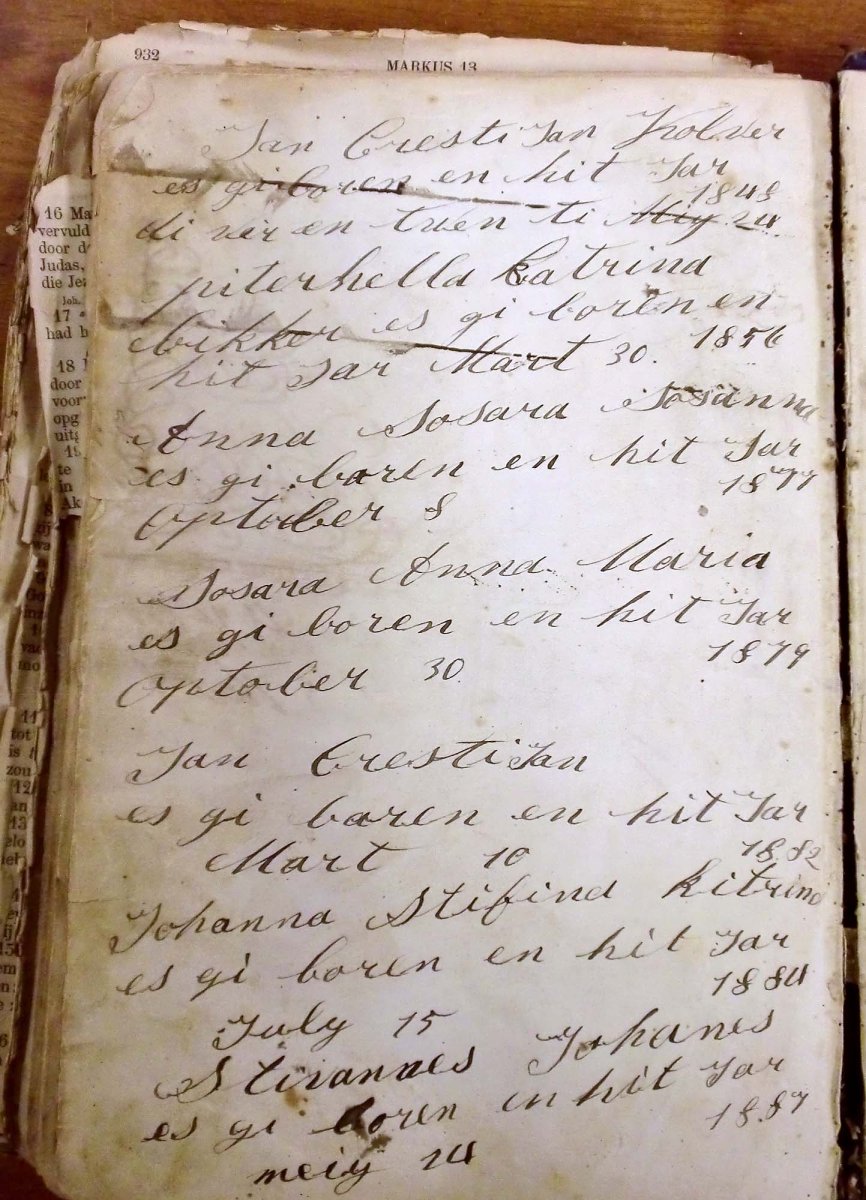 932
MARKUS 13
Jan CrestiJan Kolver
es gi boren en hit Jar
1848
di vir en twen ti Mey 24
piterhella Catrina
bikker es gi boren en
hit Jar Mart 30. 1856
Anna Sosara Sosanna
es gi boren en hit Jar
1877
Optober 8
Sosara Anna Maria
es gi boren en hit Jar
1879
Optober 30
Jan CrestiJan
es gi baren en hit Jar
Mart 10 1882
Johanna Stifina Kitrina
es gi boren en hit Jar
1884
July 15
Johanes
es gi boren en hit Jar
1887
meiy 24
16 Ma
vervuld
door d
Judas,
die Je
Joh.
17
had h
18
door
voor
opg
uit
te
in
Ak